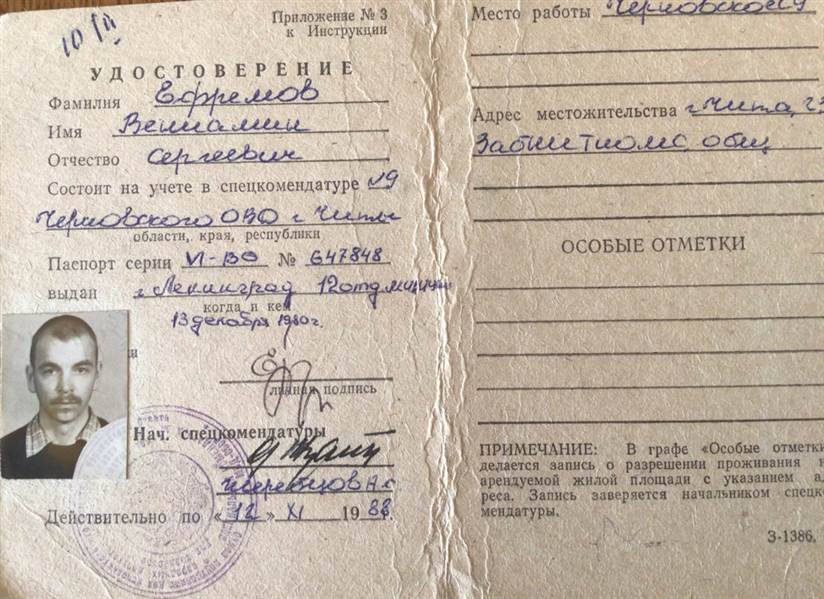 Приложение № 3
к Инструкции
УДОСТОВЕРЕНИЕ
Фамилия Ефремов
Имя Вениамин
Отчество Сергеевич
Состоит на учете в спецкомендатуре №9
Черновского ОВД г Читы
области, края, республики
Паспорт серии VI-ВО № 647848
выдан г Ленинград 12 отд милиции
когда и кем
13 декабря 1980г.
личная подпись
Нач. спецкомендатуры
Действительно по «12» XI 1988.
Место работы
Адрес местожительства г. Чита,
общ
ОСОБЫЕ ОТМЕТКИ
ПРИМЕЧАНИЕ: В графе «Особые отметки
делается запись о разрешении проживания
арендуемой жилой площади с указанием
реса. Запись заверяется начальником спецко
мендатуры.
З-1386.